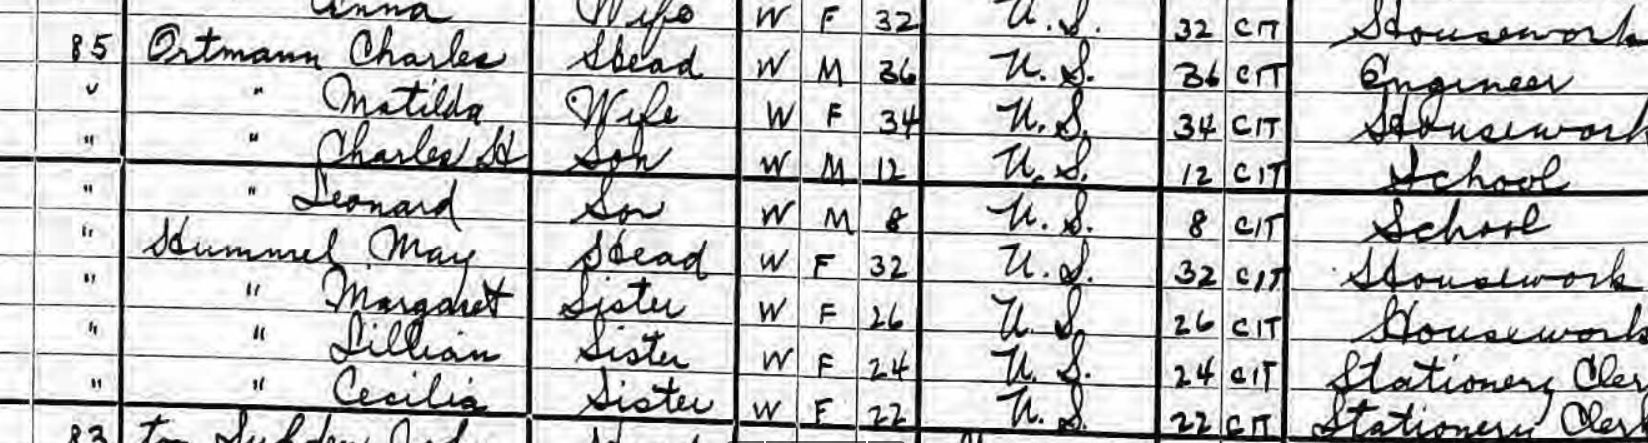 Anna Wife W F 32 U.S. 32 CIT Housework
85 Ortmann Charles Head W M 36 U.S. 36 CIT Engineer
" " Matilda Wife W F 34 U.S. 34 CIT Housework
" " Charles H Son W M 12 U.S. 12 CIT School
" " Leonard Son W M 8 U.S. 8 CIT School
" Hummel May Head W F 32 U.S. 32 CIT Housework
" " Margaret Sister W F 26 U.S. 26 CIT Housework
" " Lillian Sister W F 24 U.S. 24 CIT Stationery Cler
" " Cecilia Sister W F 22 U.S. 22 CIT Stationery Clerk
83